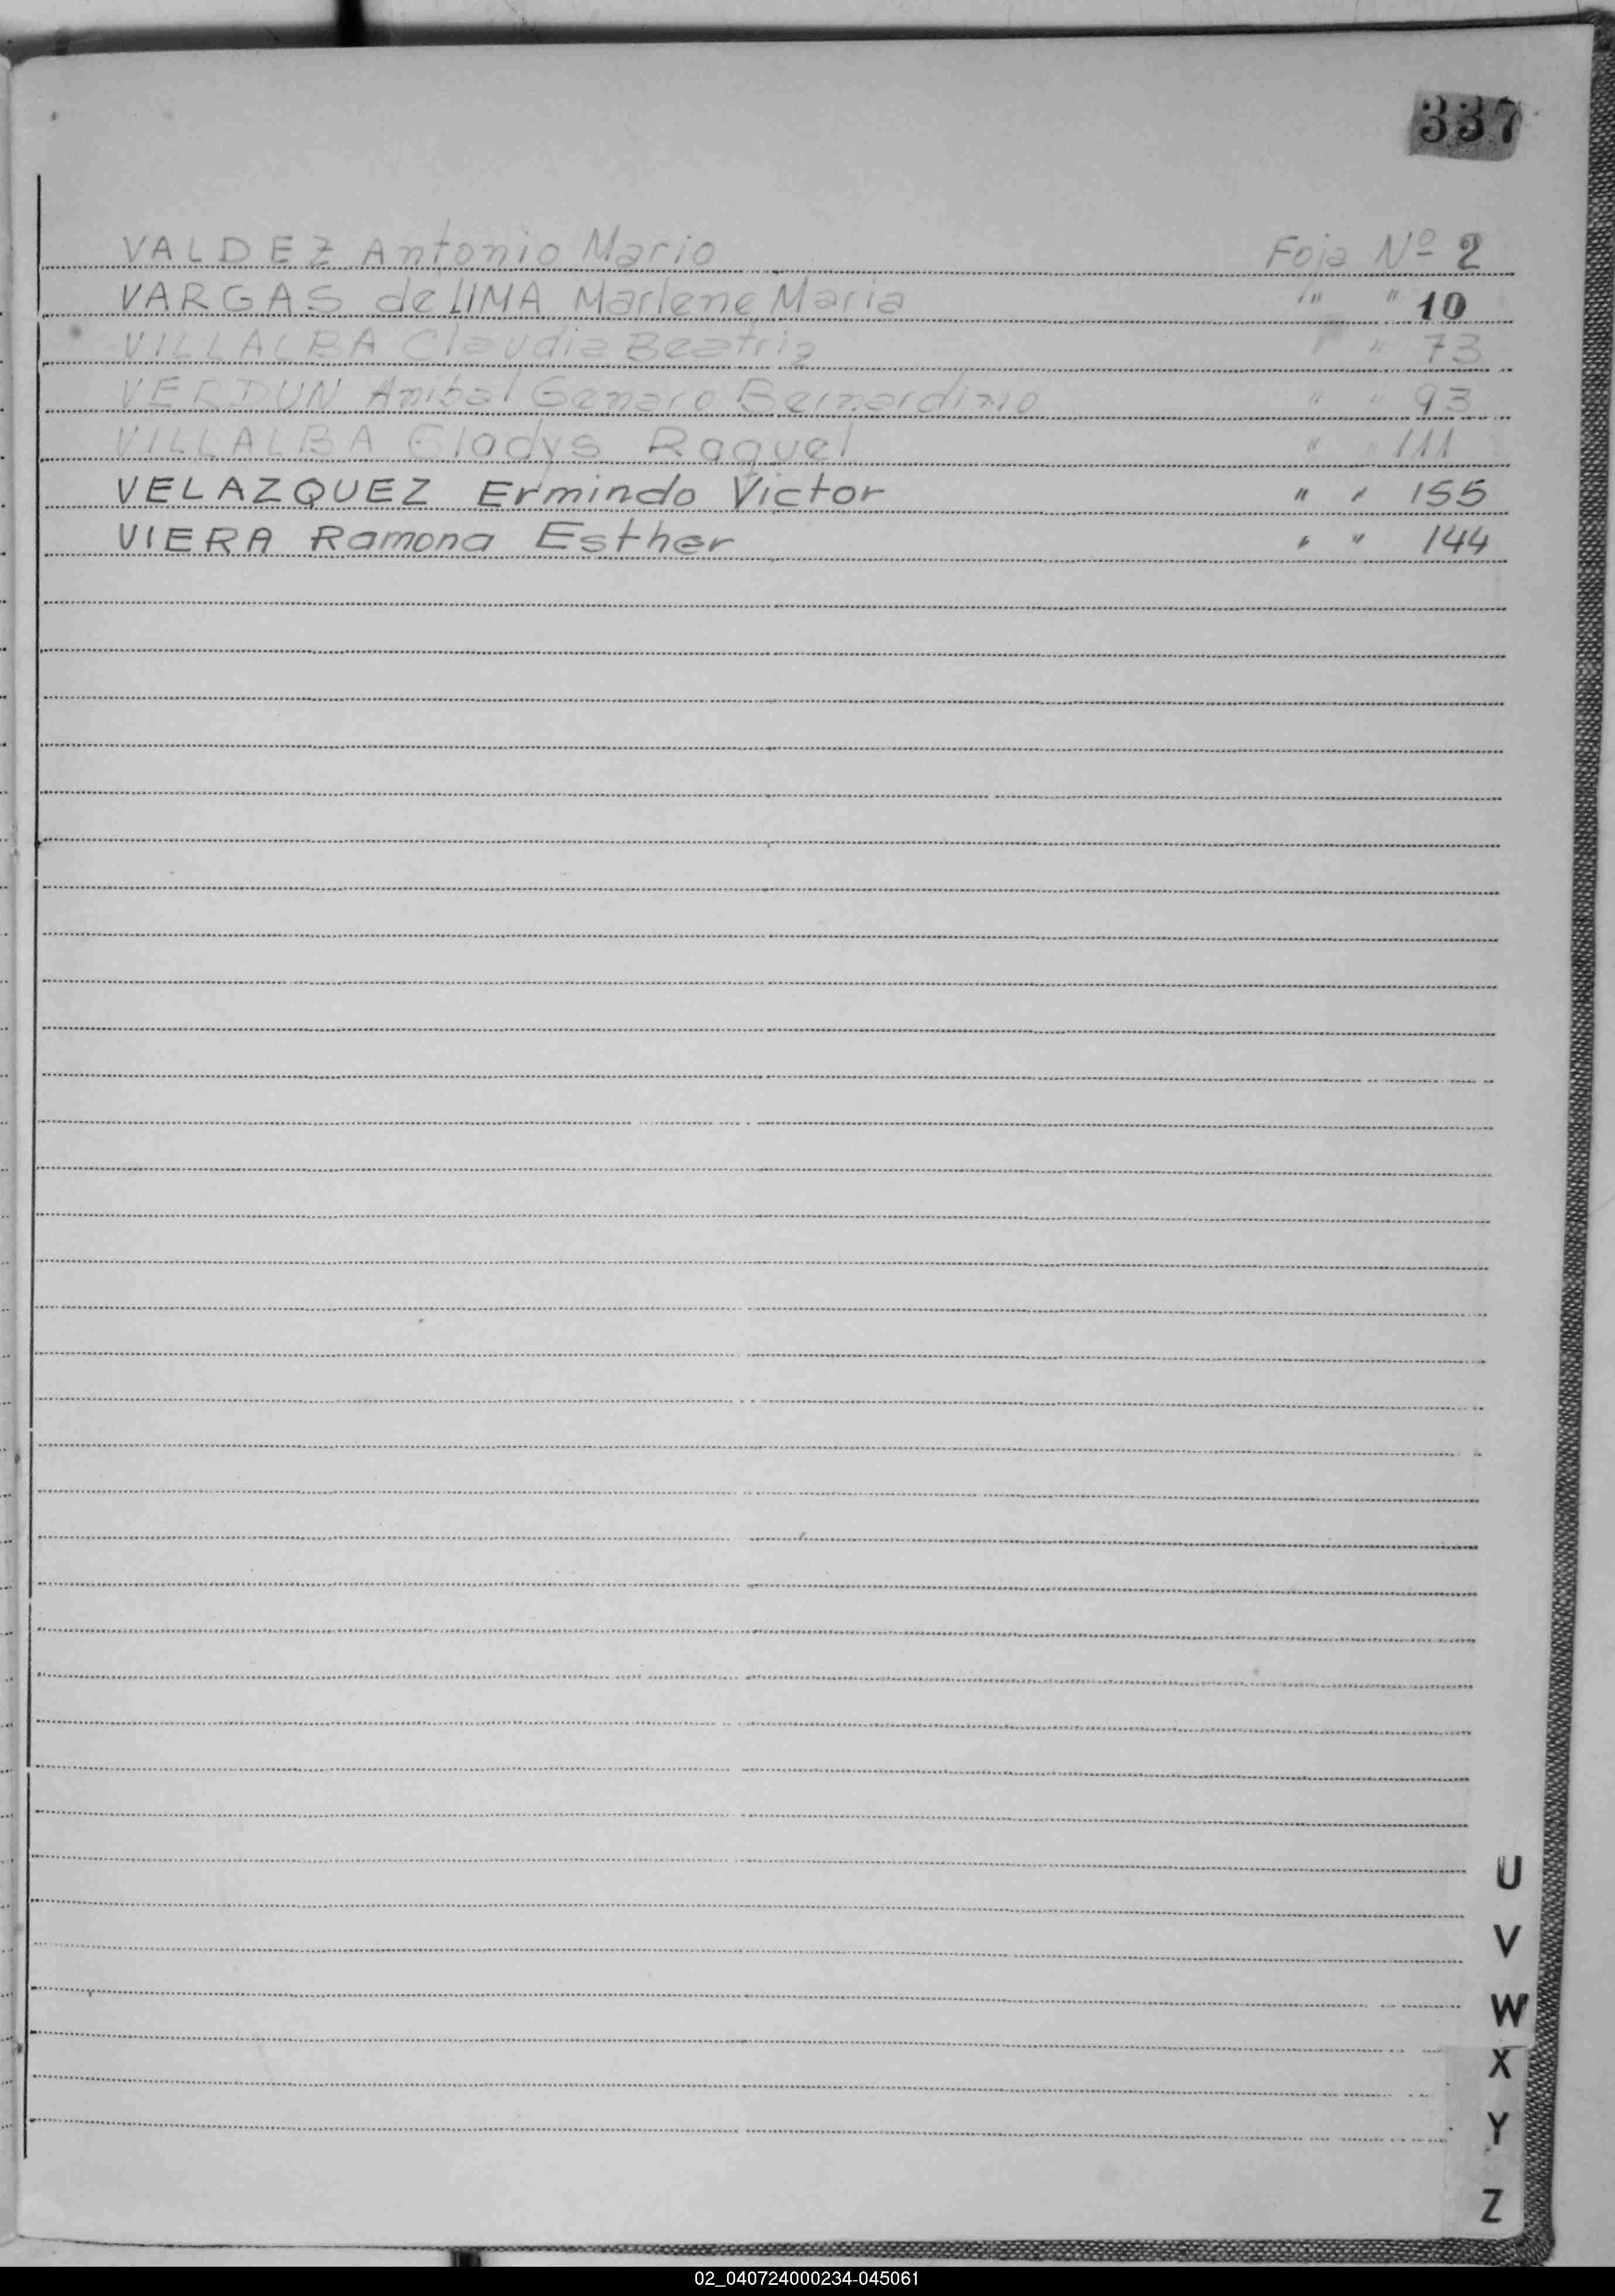 337
VALDEZ Antonio Mario Foja Nº 2
VARGAS de LIMA Marlene Maria " " 10
VILLALBA Claudia Beatriz " " 73
VERDUN Anibal Genaro Bernardino " " 93
VILLALBA Gladys Raquel " " 111
VELAZQUEZ Ermindo Victor " " 155
VIERA Ramona Esther " " 144
U
V
W
X
Y
Z
02_040724000234-045061